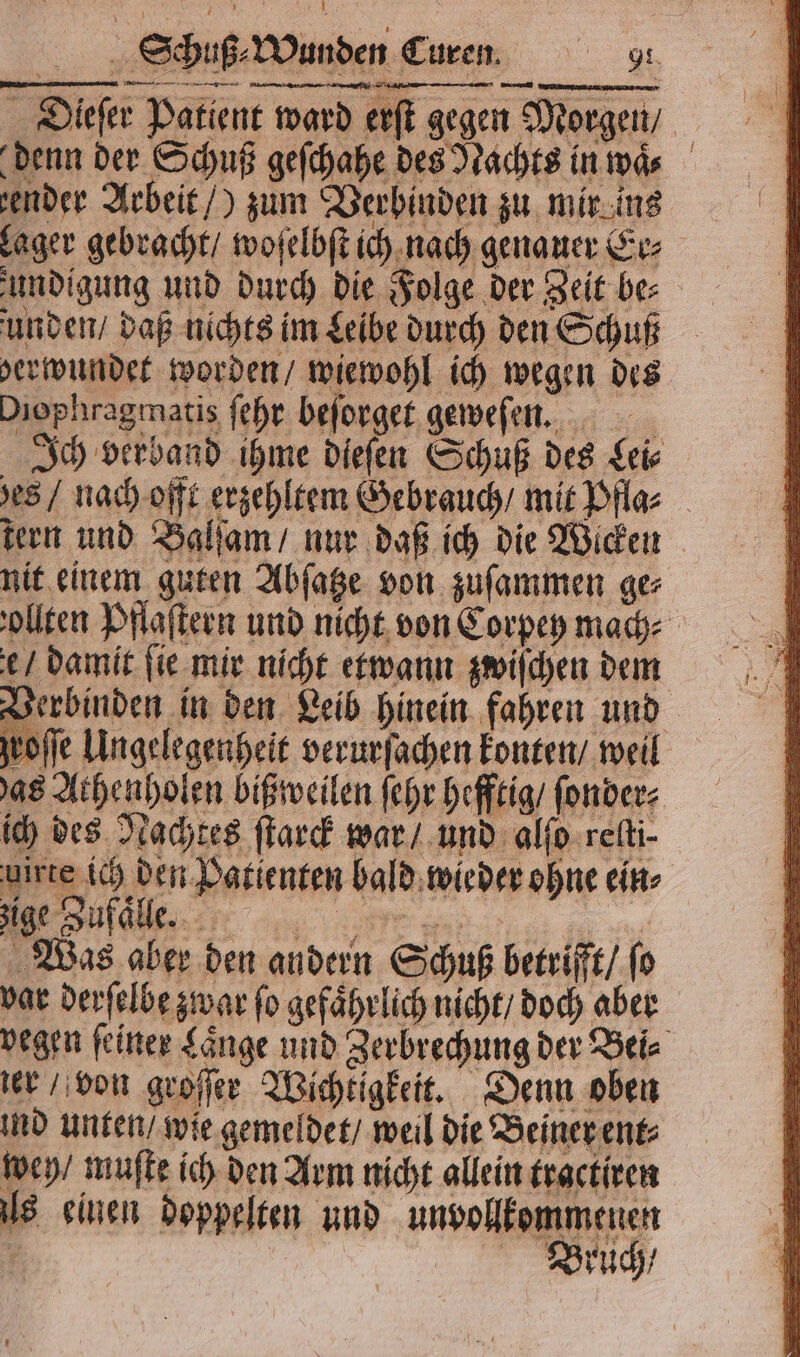 Schuß-Wunden Curen. 91
Dieſer Patient ward erſt gegen Morgen/
(denn der Schuß geſchahe des Nachts in waͤ-
render Arbeit/) zum Verbinden zu mir ins
Lager gebracht/ woſelbſt ich nach genauer Er-
kundigung und durch die Folge der Zeit be-
funden/ daß nichts im Leibe durch den Schuß
verwundet worden/ wiewohl ich wegen des
Diophragmatis ſehr beſorget geweſen.
Ich verband ihme dieſen Schuß des Lei-
bes/ nach offt erzehltem Gebrauch/ mit Pfla-
ſtern und Balſam/ nur daß ich die Wicken
mit einem guten Abſatze von zuſammen ge-
rollten Pflaſtern und nicht von Corpey mach-
te/ damit ſie mir nicht etwann zwiſchen dem
Verbinden in den Leib hinein fahren und
groſſe Ungelegenheit verurſachen konten/ weil
das Athenholen bißweilen ſehr hefftig/ ſonder-
lich des Nachtes ſtarck war/ und alſo reſti-
tuirte ich den Patienten bald wieder ohne ein-
zige Zufaͤlle.
Was aber den andern Schuß betrifft/ ſo
war derſelbe zwar ſo gefaͤhrlich nicht/ doch aber
wegen ſeiner Laͤnge und Zerbrechung der Bei-
ner/ von groſſer Wichtigkeit. Denn oben
und unten/ wie gemeldet/ weil die Beiner ent-
zwey/ muſte ich den Arm nicht allein tractiren
als einen doppelten und unvollkommenen
Bruch/